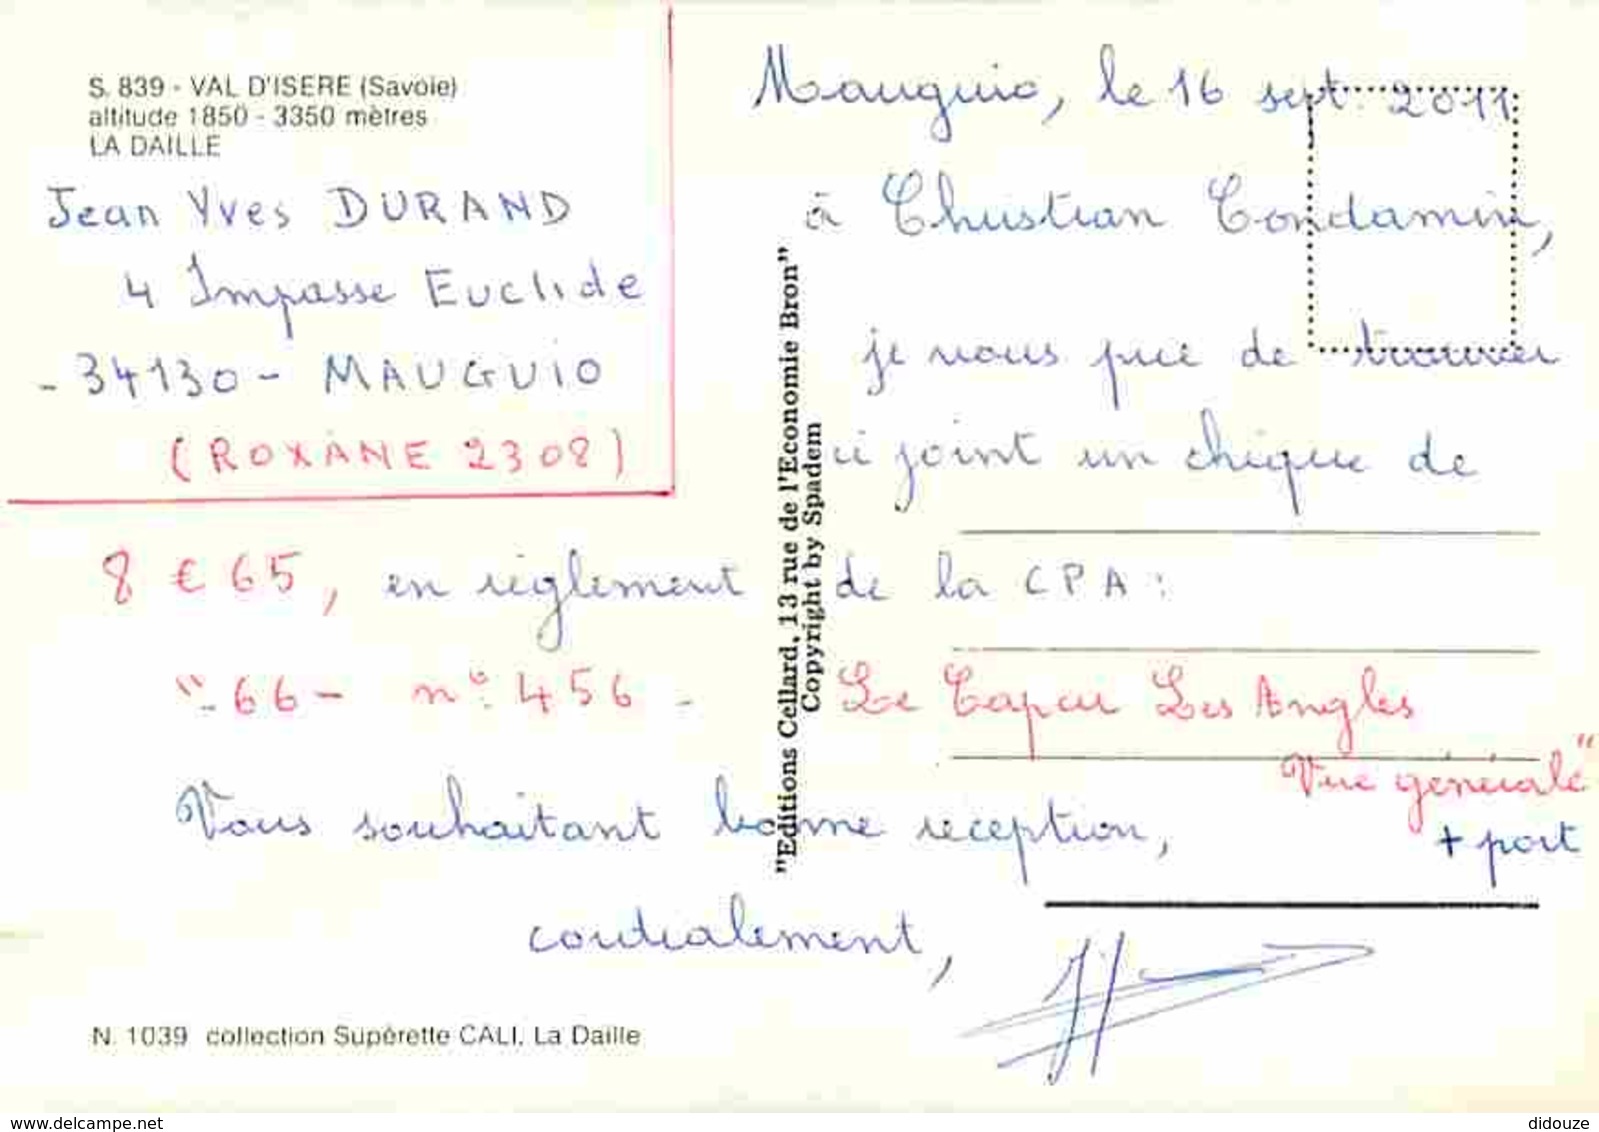 S. 839 - VAL D'ISERE (Savoie)
altitude 1850 - 3350 mètres
LA DAILLE
Jean Yves DURAND
4 Impasse Euclide
- 34130 - MAUGUIO
(ROXANE 2308)
Mauguio, le 16 sept. 2011
à Christian Condamin,
je vous prie de trouver
ci joint un chèque de
8 € 65, en règlement de la CPA :
"- 66 - n° 456 - Le Capcir Les Angles
Vue générale"
+ port
Vous souhaitant bonne réception,
cordialement,
"Editions Cellard, 13 rue de l'Economie Bron"
Copyright by Spadem
N. 1039 collection Supérette CALI, La Daille
www.delcampe.net
didouze